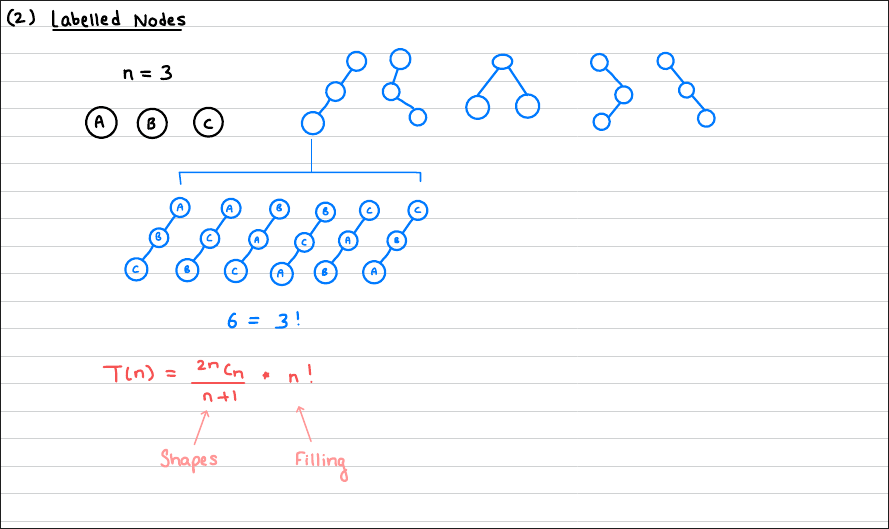 (2) Labelled Nodes
n = 3
A B C
A A B B C C
B C A C A B
C B C A B A
6 = 3!
T(n) = 2nCn / n+1 * n!
Shapes Filling